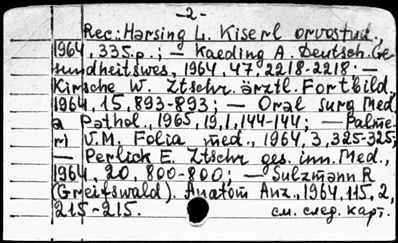 -2-
Rec: Harsing L. Kiserl orvostud.,
1964, 335.p.; — Kaeding A. Deutsch. Ge
sundheitswes, 1964, 47, 2218-2218. —
Kirsche W. Ztschr. ärztl. Fortbild.
1964, 15, 893-893; — Oral surg Med.
a Pathol., 1965, 19, 1, 144-144; — Palme-
ri V.M. Folia med., 1964, 3, 325-325;
— Perlick E. Ztschr ges. inn. Med.,
1964, 20, 800-800; — Sulzmann R
(Greifswald). Anatom Anz., 1964, 115, 2,
215-215. см. след. карт.